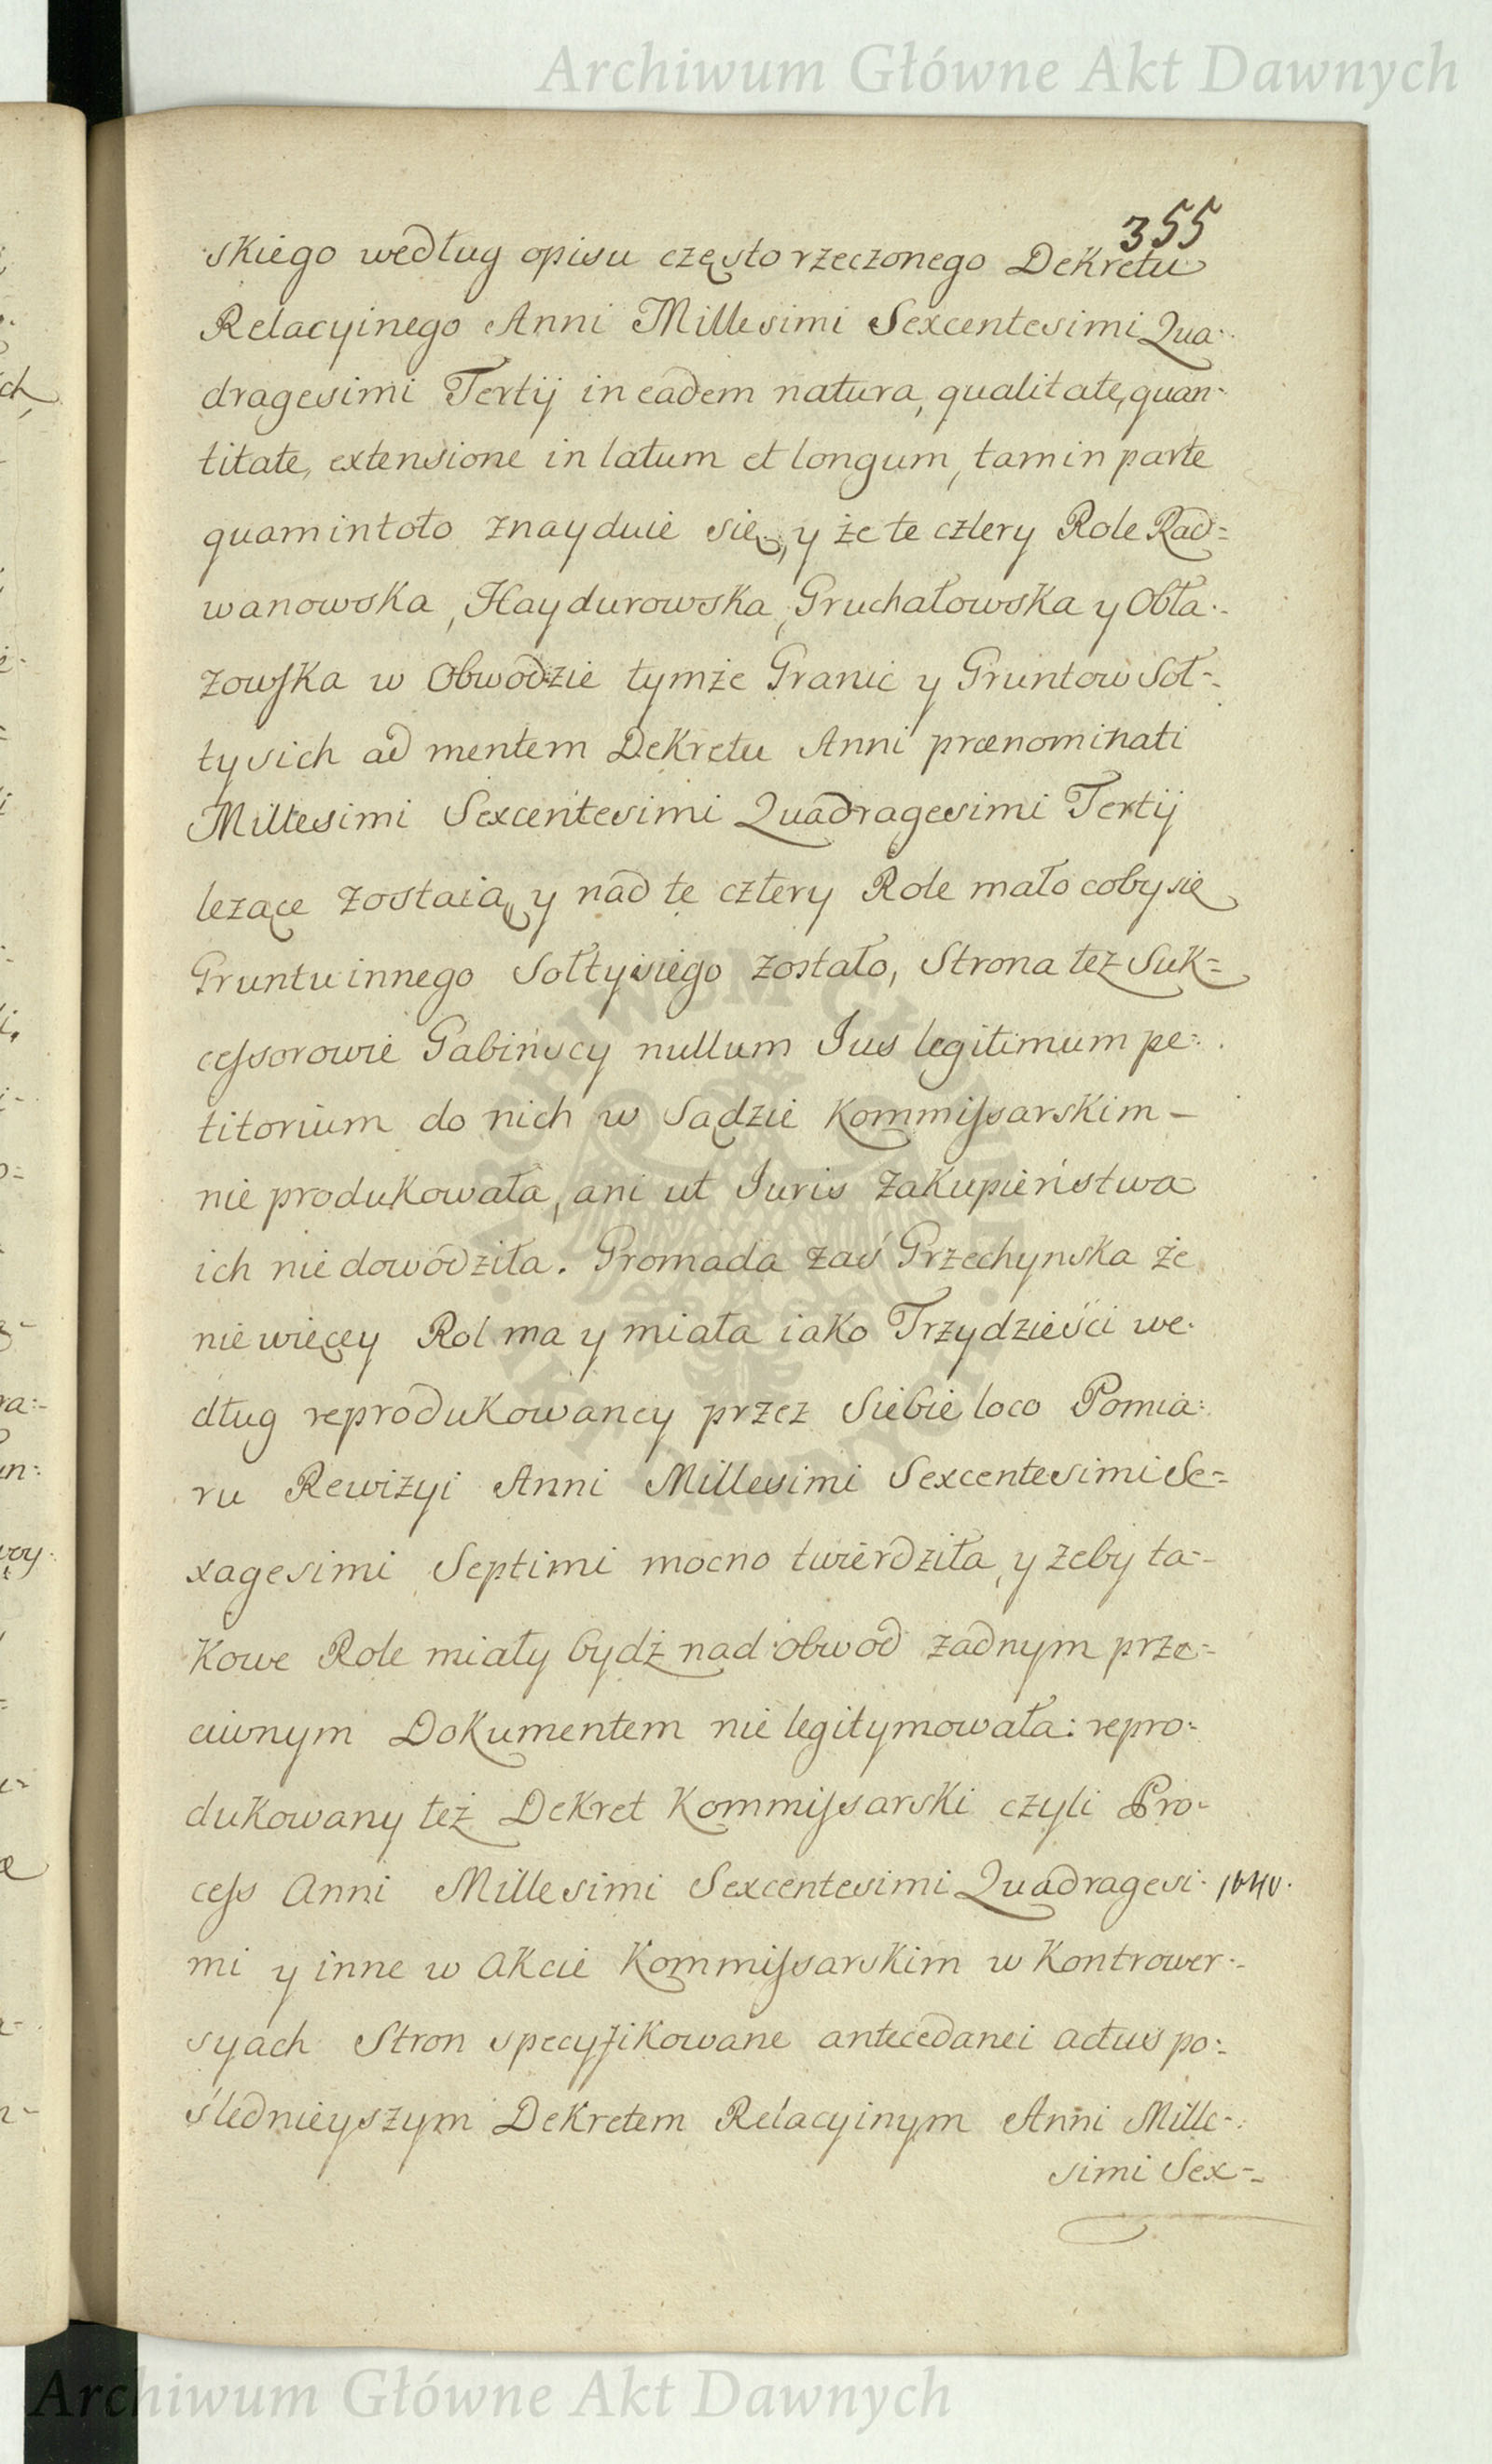 Archiwum Główne Akt Dawnych
355
skiego według opisu często rzeczonego Dekretu
Relacyinego Anni Millesimi Sexcentesimi Qua-
dragesimi Tertij in eadem natura, qualitate, quan-
titate, extensione in latum et longum, tam in parte
quam in toto znayduie się, y że te cztery Role Rad=
wanowska, Haydurowska, Gruchałowska y Obła-
zowska w Obwodzie tymże Granic y Gruntow Soł-
tysich ad mentem Dekretu Anni prænominati
Millesimi Sexcentesimi Quadragesimi Tertij
lezące zostaią, y nad te cztery Role mało coby się
Gruntu innego Sołtysiego zostało, Strona też Suk=
cessorowie Gabińscy nullum Jus legitimum pe-
titorium do nich w Sądzie Kommissarskim –
nie produkowała, ani ut Juris zakupieństwa
ich nie dowodziła. Gromada zaś Grzechynska że
nie więcey Rol ma y miała iako Trzydzieści we-
dług reprodukowaney przez Siebie loco Pomia-
ru Rewizyi Anni Millesimi Sexcentesimi Se=
xagesimi Septimi mocno twierdziła, y żeby ta-
kowe Role miały bydź nad obwod żadnym prze=
ciwnym Dokumentem nie legitymowała: repro-
dukowany też Dekret Kommissarski czyli Pro-
cess Anni Millesimi Sexcentesimi Quadragesi- 1640.
mi y inne w Akcie Kommissarskim w Kontrower-
syach Stron specyfikowane antecedanei actus po-
ślednieyszym Dekretem Relacyinym Anni Mille-
simi Sex=
Archiwum Główne Akt Dawnych